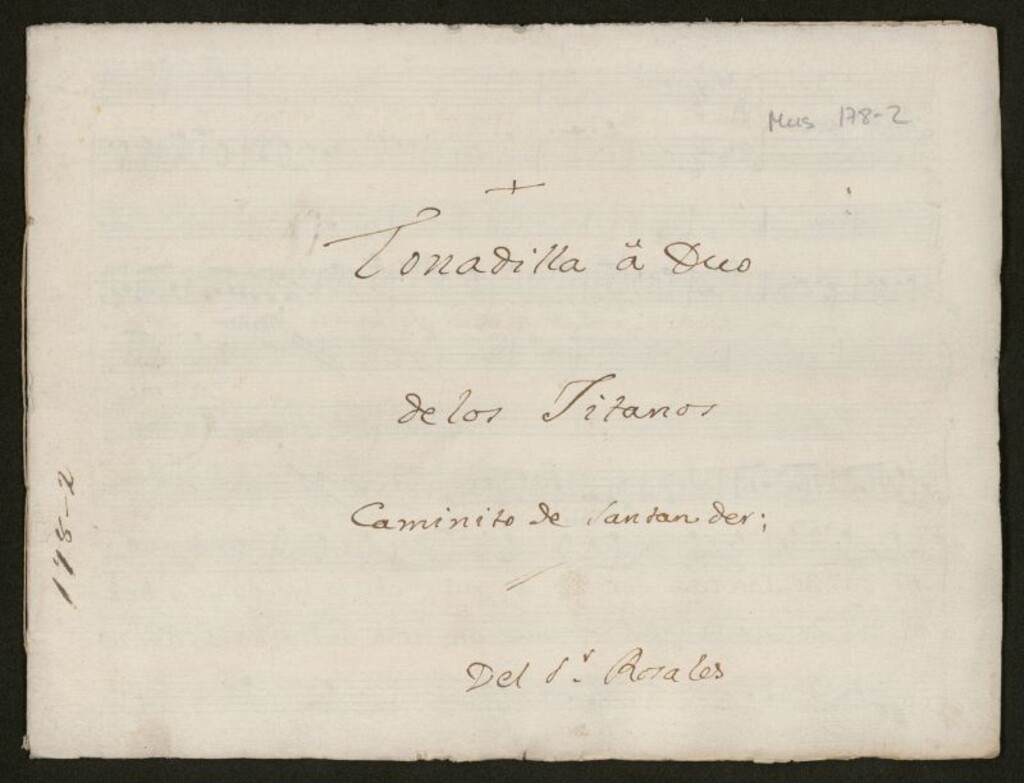 Mus 178-2
+
Tonadilla â Duo
de los Jitanos
Caminito de Santander;
Del Sr. Rosales
178-2